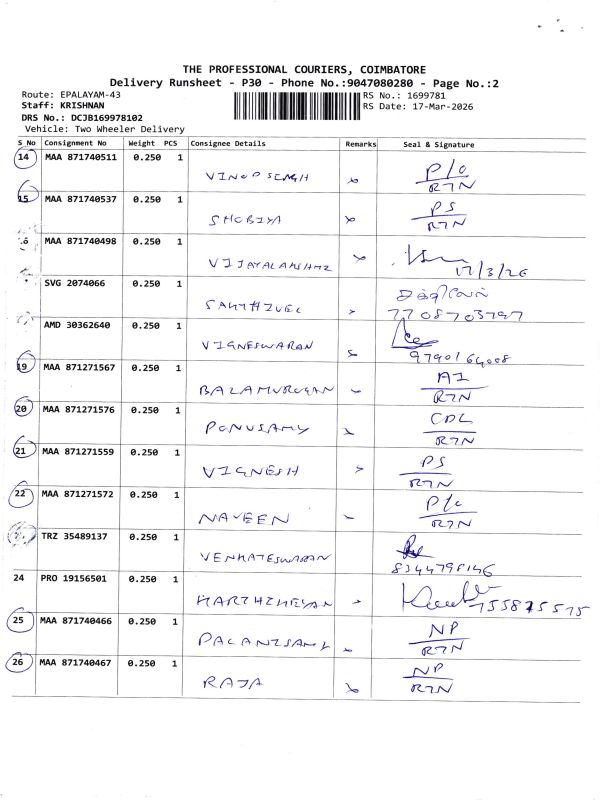 THE PROFESSIONAL COURIERS, COIMBATORE
Delivery Runsheet - P30 - Phone No.:9047080280 - Page No.:2
Route: EPALAYAM-43
RS No.: 1699781
Staff: KRISHNAN
RS Date: 17-Mar-2026
DRS No.: DCJB169978102
Vehicle: Two Wheeler Delivery
S No Consignment No Weight PCS Consignee Details Remarks Seal & Signature
14 MAA 871740511 0.250 1 VINOP SINGH P/C RTN
15 MAA 871740537 0.250 1 SHOBIYA PS RTN
MAA 871740498 0.250 1 VIJAYALAKSHMI 17/3/26
SVG 2074066 0.250 1 SAKTHIVEL 7708703797
AMD 30362640 0.250 1 VIGNESWARAN
19 MAA 871271567 0.250 1 BALAMURUGAN AI RTN
20 MAA 871271576 0.250 1 PONUSAMY CDL RTN
21 MAA 871271559 0.250 1 VIGNESH PS RTN
22 MAA 871271572 0.250 1 NAVEEN P/C RTN
TRZ 35489137 0.250 1 VENKATESWARAN
24 PRO 19156501 0.250 1 KARTHIKEYAN
25 MAA 871740466 0.250 1 PALANISAMY NP RTN
26 MAA 871740467 0.250 1 RAJA NP RTN